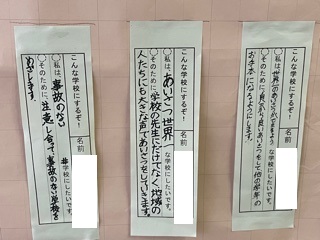 こんな学校にするぞ!
名前
○私は、事故のない
#学校にしたいです。
○そのために、生意し合って事故のない学校を
めざします。
こんな学校にするぞ!
名前
○私は、あいさつ世界一
な学校にしたいです。
○そのために、学校の先生にだけでなく、地域の
人たちにも大きな声であいさつをしていきます。
こんな学校にするぞ!
名前
○私は、世界一のあいさつができるよう
な学校にしたいです。
○そのために、良いあいさつをして他の学年の
お手本になるようにします。